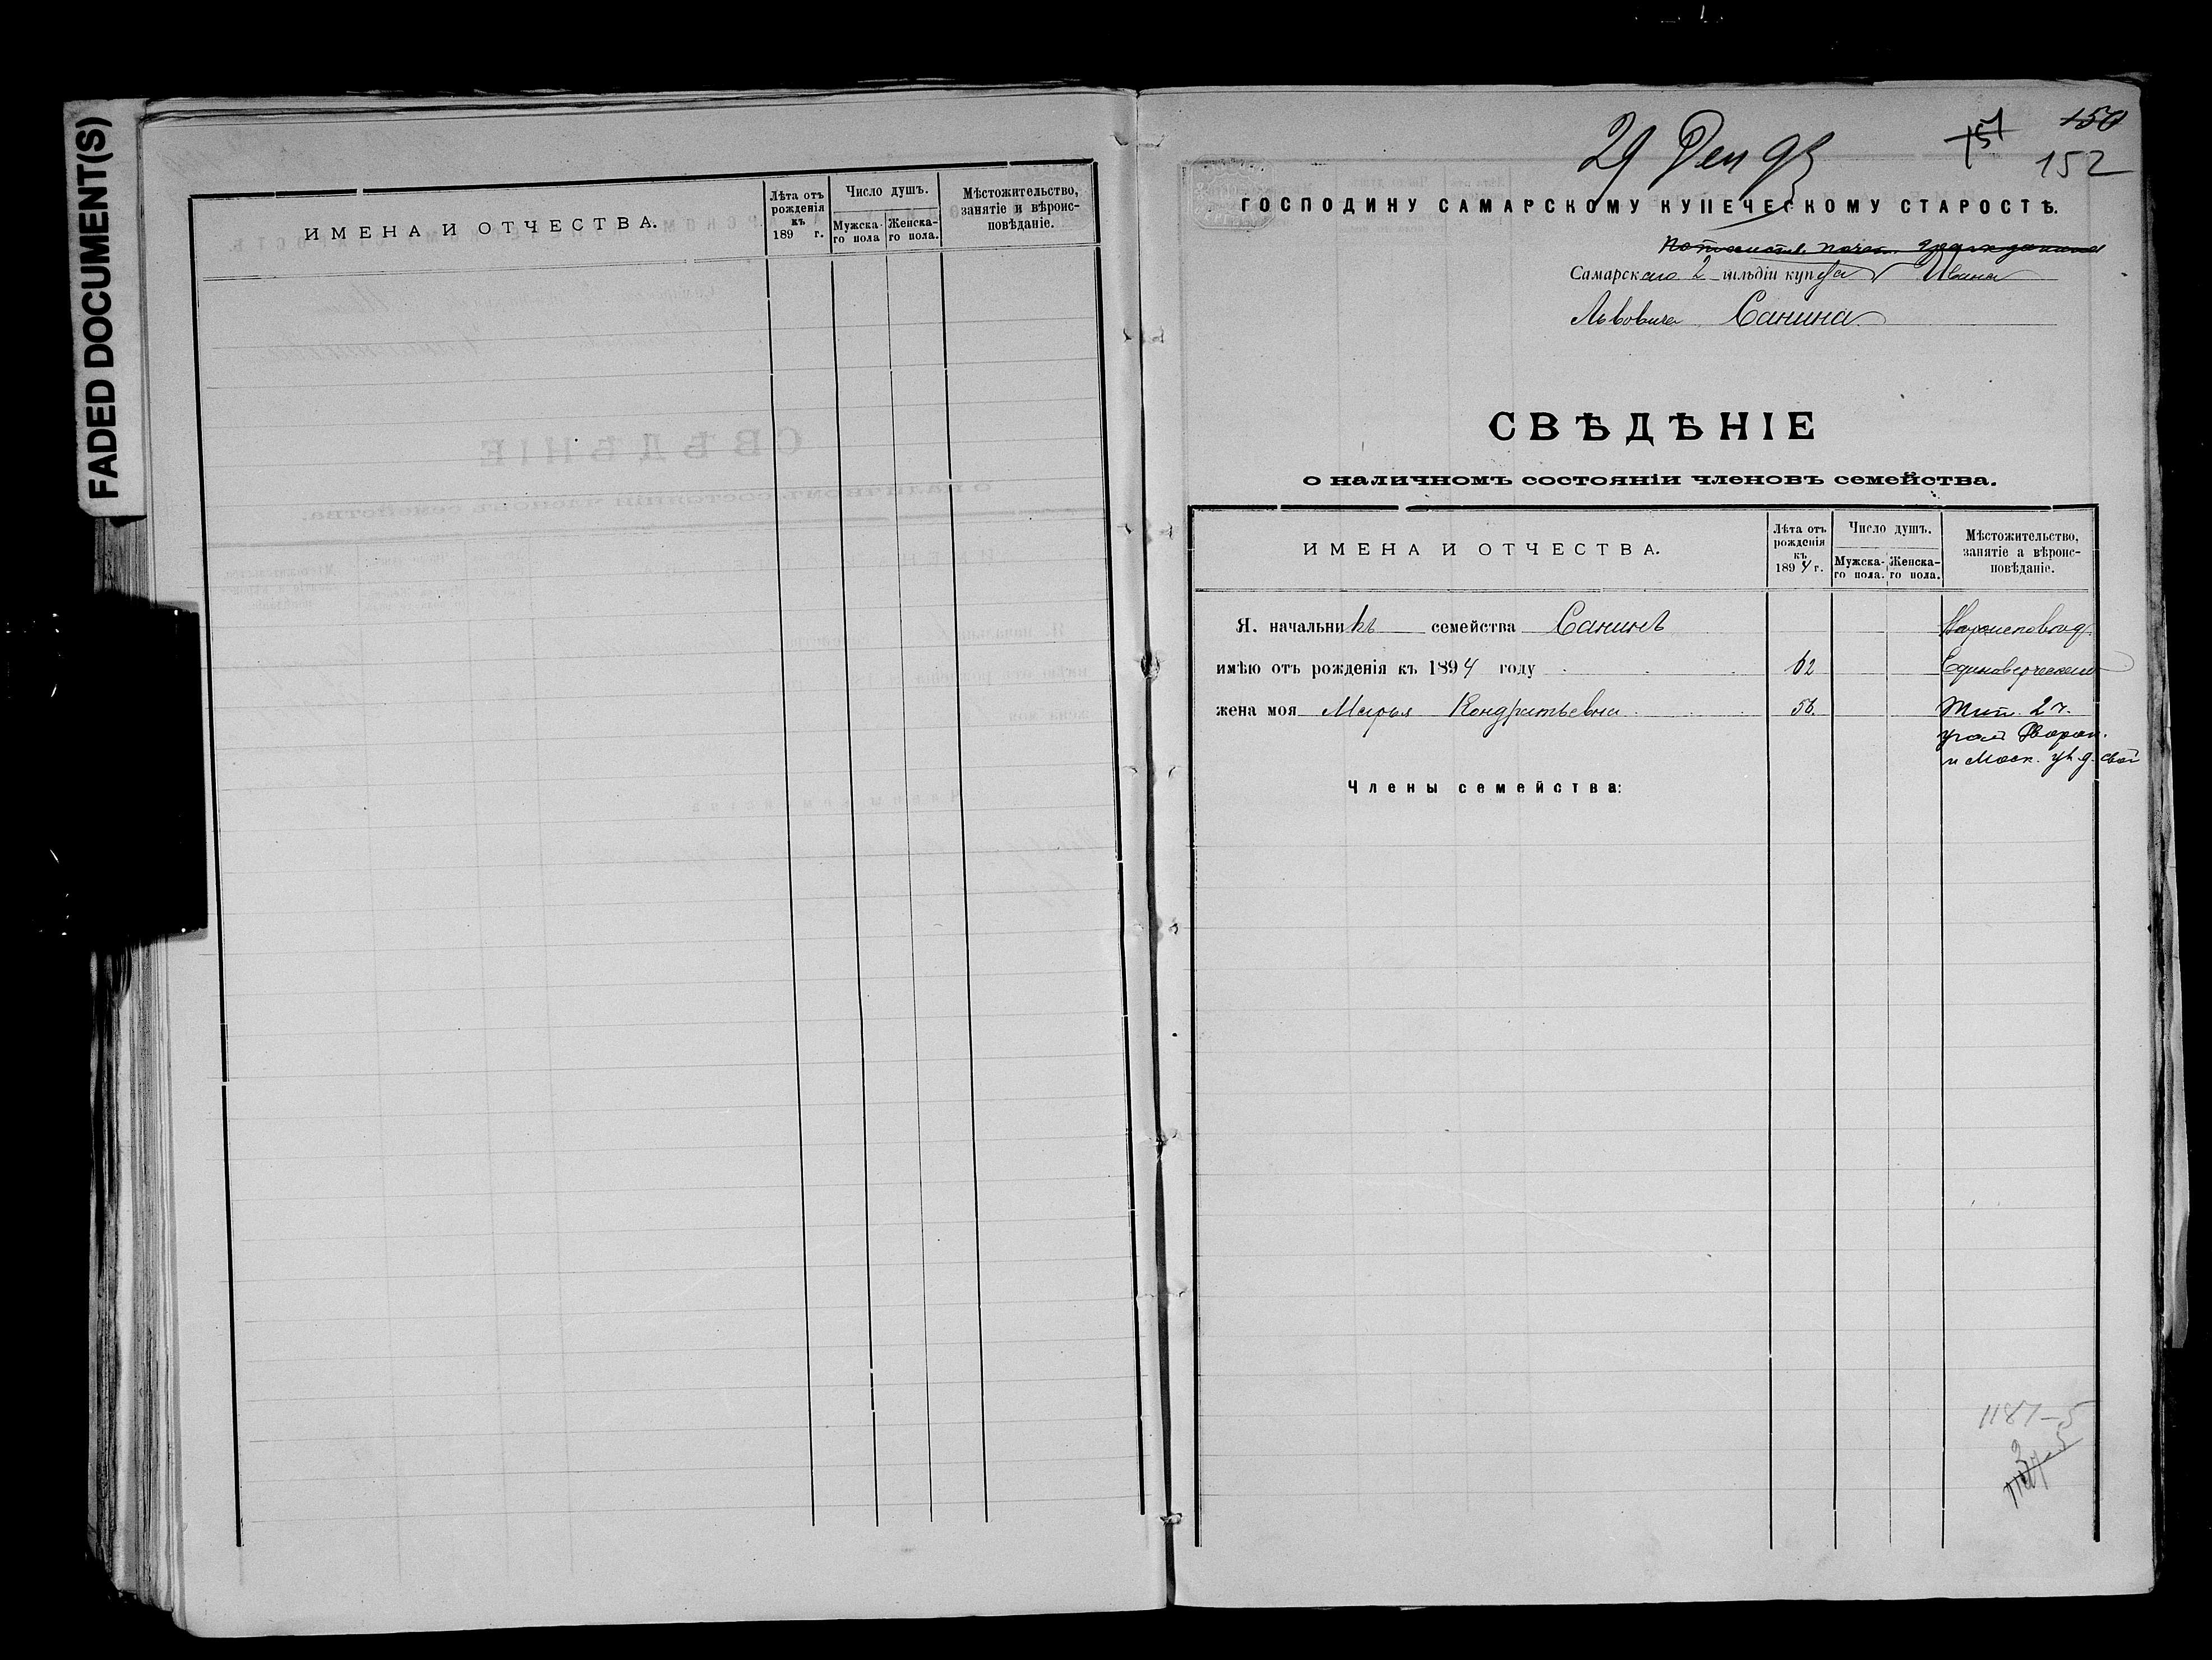 FADED DOCUMENT(S)
ИМЕНА И ОТЧЕСТВА.
Лѣта отъ
рожденія
къ
189 г.
Число душъ.
Мужска-
го пола
Женска-
го пола.
Мѣстожительство,
занятіе и вѣроис-
повѣданіе.
29 Дек 93
151
150
152
ГОСПОДИНУ САМАРСКОМУ КУПЕЧЕСКОМУ СТАРОСТѢ.
Потомств. почет. гражданина
Самарскаго 2 гильдіи купца Ивана
Львовича Санина
СВѢДѢНІЕ
о наличномъ состояніи членовъ семейства.
ИМЕНА И ОТЧЕСТВА.
Лѣта отъ
рожденія
къ
1894 г.
Число душъ.
Мужска-
го пола.
Женска-
го пола.
Мѣстожительство,
занятіе а вѣроис-
повѣданіе.
Я. начальникъ семейства Санинъ
Вѣроисповѣд.
имѣю отъ рожденія къ 1894 году 62
Единоверческаго
жена моя Марья Кондратьевна 56.
Жит. 2 ч.
угол Дворян.
и Моск. ул. д. свой
Члены семейства:
1187-5